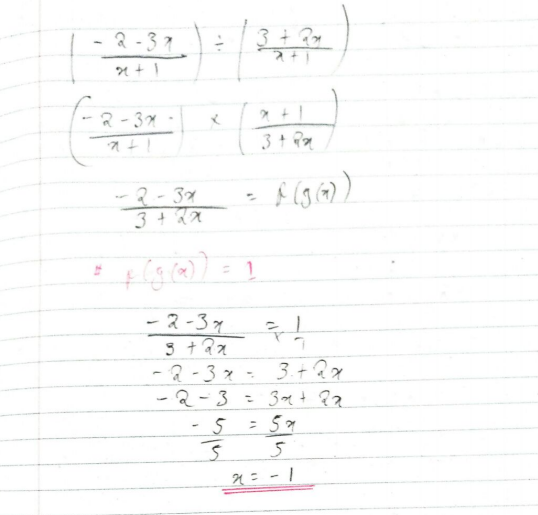 (-2-3x / x+1) ÷ (3+2x / x+1)
(-2-3x / x+1) × (x+1 / 3+2x)
-2-3x / 3+2x = f(g(x))
* f(g(x)) = 1
-2-3x / 3+2x = 1
-2-3x = 3+2x
-2-3 = 3x+2x
-5/5 = 5x/5
x = -1